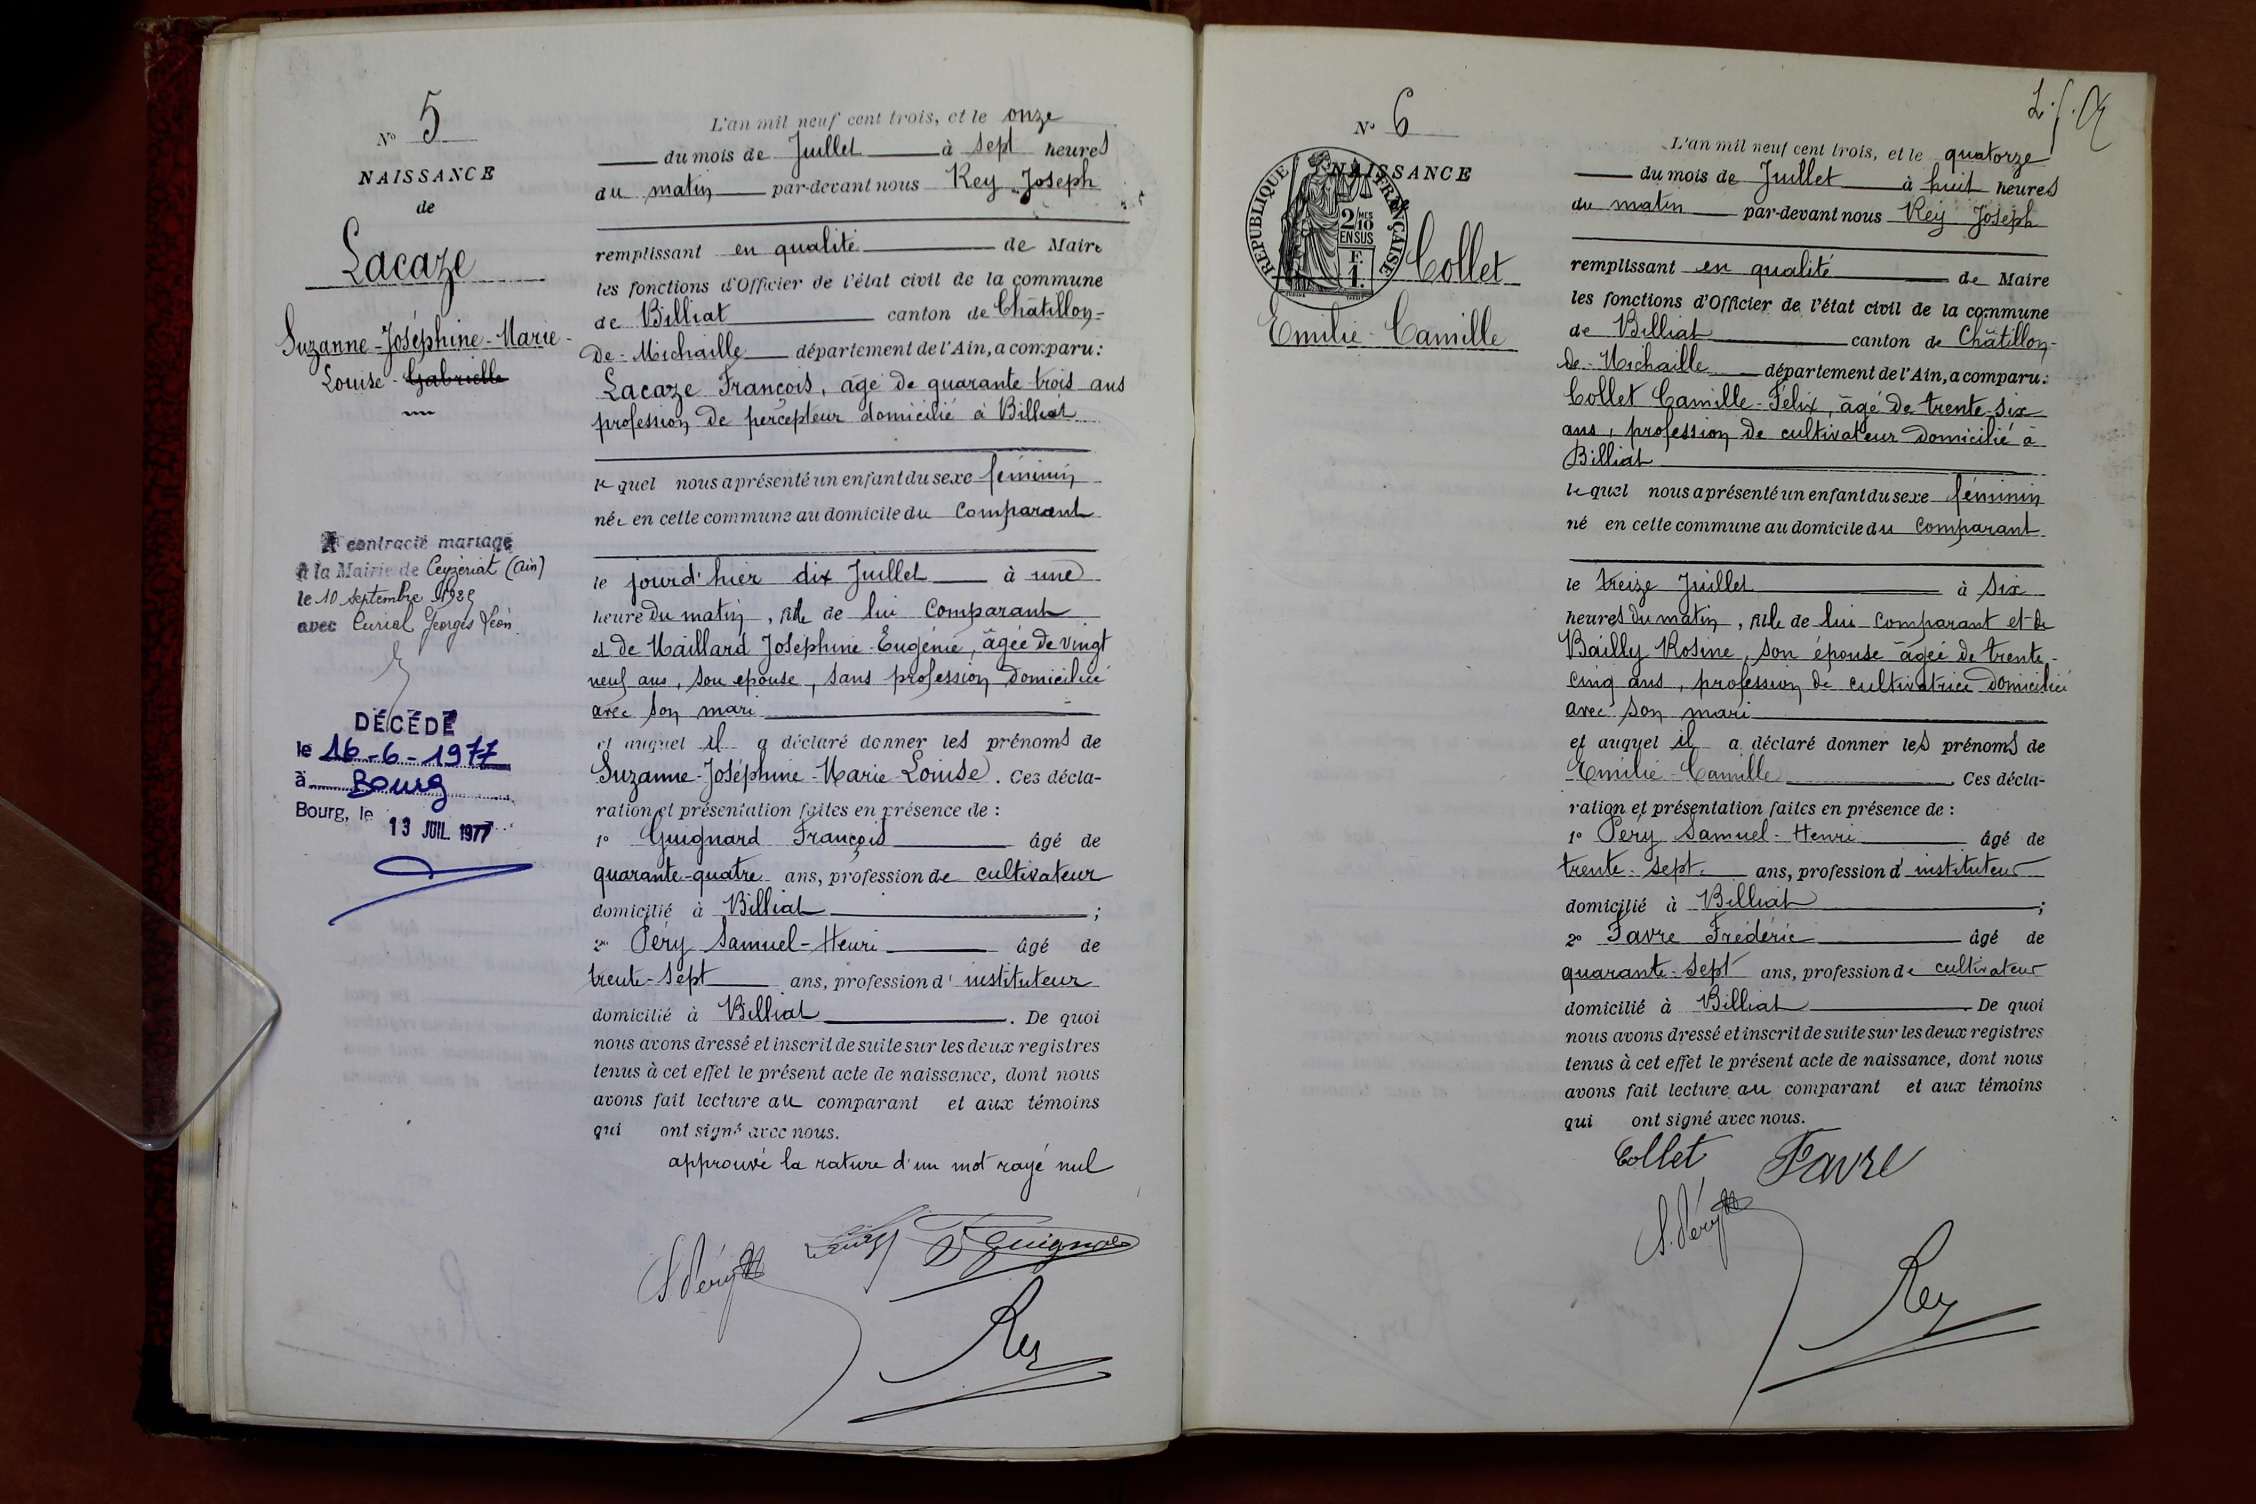 N° 5
NAISSANCE
de
Lacaze
Suzanne-Joséphine-Marie-
Louise-Gabrielle
A contracté mariage
à la Mairie de Ceyzériat (Ain)
le 10 septembre
avec Curial Georges Léon
DÉCÉDÉ
le 16-6-1977
à Bourg
Bourg, le 13 JUIL. 1977
L'an mil neuf cent trois, et le onze
du mois de Juillet à sept heures
du matin par-devant nous Rey Joseph
remplissant en qualité de Maire
les fonctions d'Officier de l'état civil de la commune
de Billiat canton de Châtillon-
de-Michaille département de l'Ain, a comparu:
Lacaze François, âgé de quarante-trois ans
profession de percepteur domicilié à Billiat
lequel nous a présenté un enfant du sexe féminin
née en cette commune au domicile du comparant
le jourd'hier dix Juillet à une
heure du matin, fille de lui comparant
et de Maillard Joséphine-Eugénie, âgée de vingt
neuf ans, son épouse, sans profession domiciliée
avec son mari
et auquel il a déclaré donner les prénoms de
Suzanne-Joséphine-Marie-Louise. Ces décla-
ration et présentation faites en présence de :
1° Guignard François âgé de
quarante-quatre ans, profession de cultivateur
domicilié à Billiat ;
2° Péry Samuel-Henri âgé de
trente-sept ans, profession d'instituteur
domicilié à Billiat . De quoi
nous avons dressé et inscrit de suite sur les deux registres
tenus à cet effet le présent acte de naissance, dont nous
avons fait lecture au comparant et aux témoins
qui ont signé avec nous.
approuvé la rature d'un mot rayé nul
S. Péry Guignard
Rey
N° 6
NAISSANCE
RÉPUBLIQUE FRANÇAISE
2/10 MES
EN SUS
F.
1.
Collet
Emilie-Camille
L'an mil neuf cent trois, et le quatorze
du mois de Juillet à huit heures
du matin par-devant nous Rey Joseph
remplissant en qualité de Maire
les fonctions d'Officier de l'état civil de la commune
de Billiat canton de Châtillon-
de-Michaille département de l'Ain, a comparu:
Collet Camille-Félix, âgé de trente-six
ans, profession de cultivateur domicilié à
Billiat
lequel nous a présenté un enfant du sexe féminin
né en cette commune au domicile du comparant
le treize Juillet à six
heures du matin, fille de lui comparant et de
Bailly Rosine, son épouse âgée de trente-
cinq ans, profession de cultivatrice domiciliée
avec son mari
et auquel il a déclaré donner les prénoms de
Emilie-Camille Ces décla-
ration et présentation faites en présence de :
1° Péry Samuel-Henri âgé de
trente-sept ans, profession d'instituteur
domicilié à Billiat ;
2° Favre Frédéric âgé de
quarante-sept ans, profession de cultivateur
domicilié à Billiat De quoi
nous avons dressé et inscrit de suite sur les deux registres
tenus à cet effet le présent acte de naissance, dont nous
avons fait lecture au comparant et aux témoins
qui ont signé avec nous.
Collet Favre
S. Péry
Rey